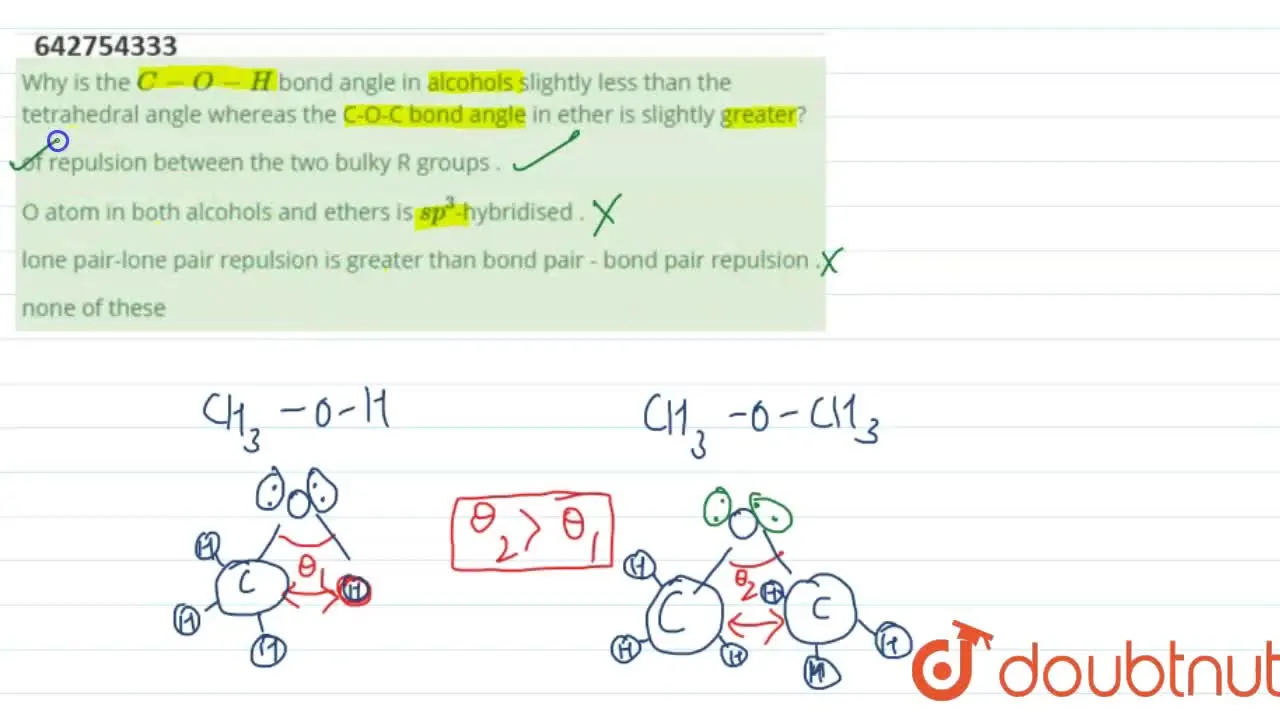 642754333
Why is the C – O – H bond angle in alcohols slightly less than the
tetrahedral angle whereas the C-O-C bond angle in ether is slightly greater?
of repulsion between the two bulky R groups .
O atom in both alcohols and ethers is sp³-hybridised .
lone pair-lone pair repulsion is greater than bond pair - bond pair repulsion .
none of these
CH₃ – O – H
CH₃ – O – CH₃
O
θ₂ > θ₁
O
H
C
θ₁
H
H
H
H
C
θ₂
H
C
H
H
H
H
doubtnut